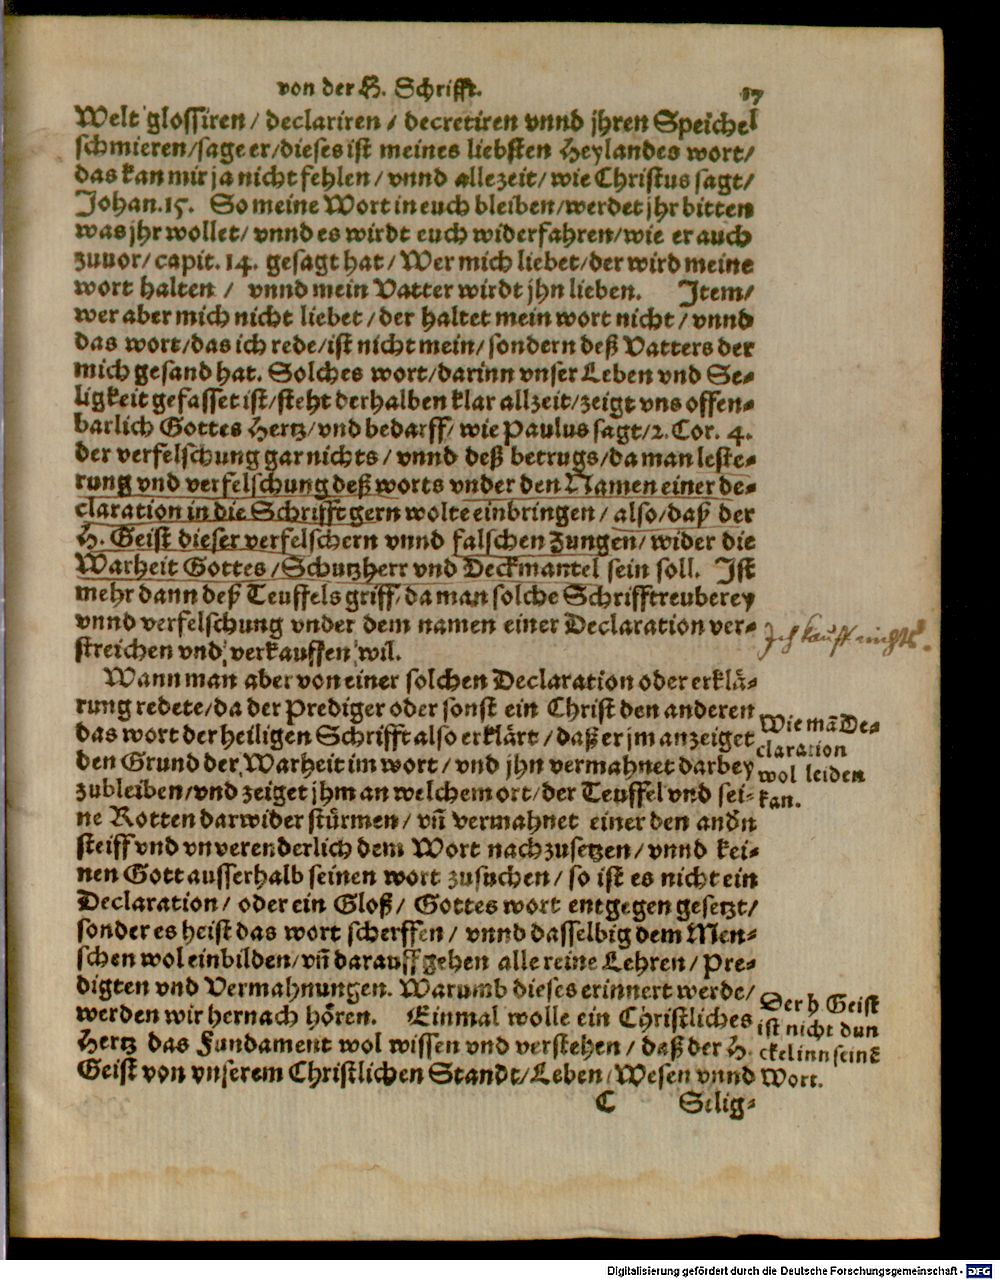 von der H. Schrifft. 17
Welt glossiren / declariren / decretiren vnnd jhren Speichel
schmieren/sage er/dieses ist meines liebsten Heylandes wort/
das kan mir ja nicht fehlen / vnnd allezeit/ wie Christus sagt/
Johan.15. So meine Wort in euch bleiben/werdet jhr bitten
was jhr wollet/ vnnd es wirdt euch widerfahren/wie er auch
zuuor/ capit. 14. gesagt hat/ Wer mich liebet/der wird meine
wort halten / vnnd mein Vatter wirdt jhn lieben. Item/
wer aber mich nicht liebet /der haltet mein wort nicht/ vnnd
das wort/das ich rede/ist nicht mein/ sondern deß Vatters der
mich gesand hat. Solches wort/darinn vnser Leben vnd Se-
ligkeit gefasset ist/steht derhalben klar allzeit/zeigt vns offen-
barlich Gottes Hertz/vnd bedarff/ wie Paulus sagt/2. Cor. 4.
der verfelschung gar nichts / vnnd deß betrugs/da man leste-
rung vnd verfelschung deß worts vnder den Namen einer de-
claration in die Schrifft gern wolte einbringen / also/daß der
H. Geist dieser verfelschern vnnd falschen Zungen/ wider die
Warheit Gottes /Schutzherr vnd Deckmantel sein soll. Ist
mehr dann deß Teuffels griff/da man solche Schrifftreuberey
vnnd verfelschung vnder dem namen einer Declaration ver-
streichen vnd verkauffen wil.
Ich kauff nichts.
Wann man aber von einer solchen Declaration oder erklä-
rung redete/da der Prediger oder sonst ein Christ den anderen
das wort der heiligen Schrifft also erklärt /daß er jm anzeiget
den Grund der Warheit im wort/ vnd jhn vermahnet darbey
zubleiben/vnd zeiget jhm an welchem ort/der Teuffel vnd sei-
ne Rotten darwider stürmen/ vñ vermahnet einer den andn
steiff vnd vnverenderlich dem Wort nachzusetzen/ vnnd kei-
nen Gott ausserhalb seinen wort zusuchen/ so ist es nicht ein
Declaration/ oder ein Gloß/ Gottes wort entgegen gesetzt/
sonder es heist das wort scherffen / vnnd dasselbig dem Men-
schen wol einbilden/vñ darauff gehen alle reine Lehren/ Pre-
digten vnd Vermahnungen. Warumb dieses erinnert werde/
werden wir hernach hören. Einmal wolle ein Christliches
Hertz das Fundament wol wissen vnd verstehen / daß der H.
Geist von vnserem Christlichen Standt/Leben/Wesen vnnd
Wie mã De-
claration
wol leiden
kan.
Der h Geist
ist nicht dun
ckel inn seinẽ
Wort.
C Selig-
Digitalisierung gefördert durch die Deutsche Forschungsgemeinschaft - DFG